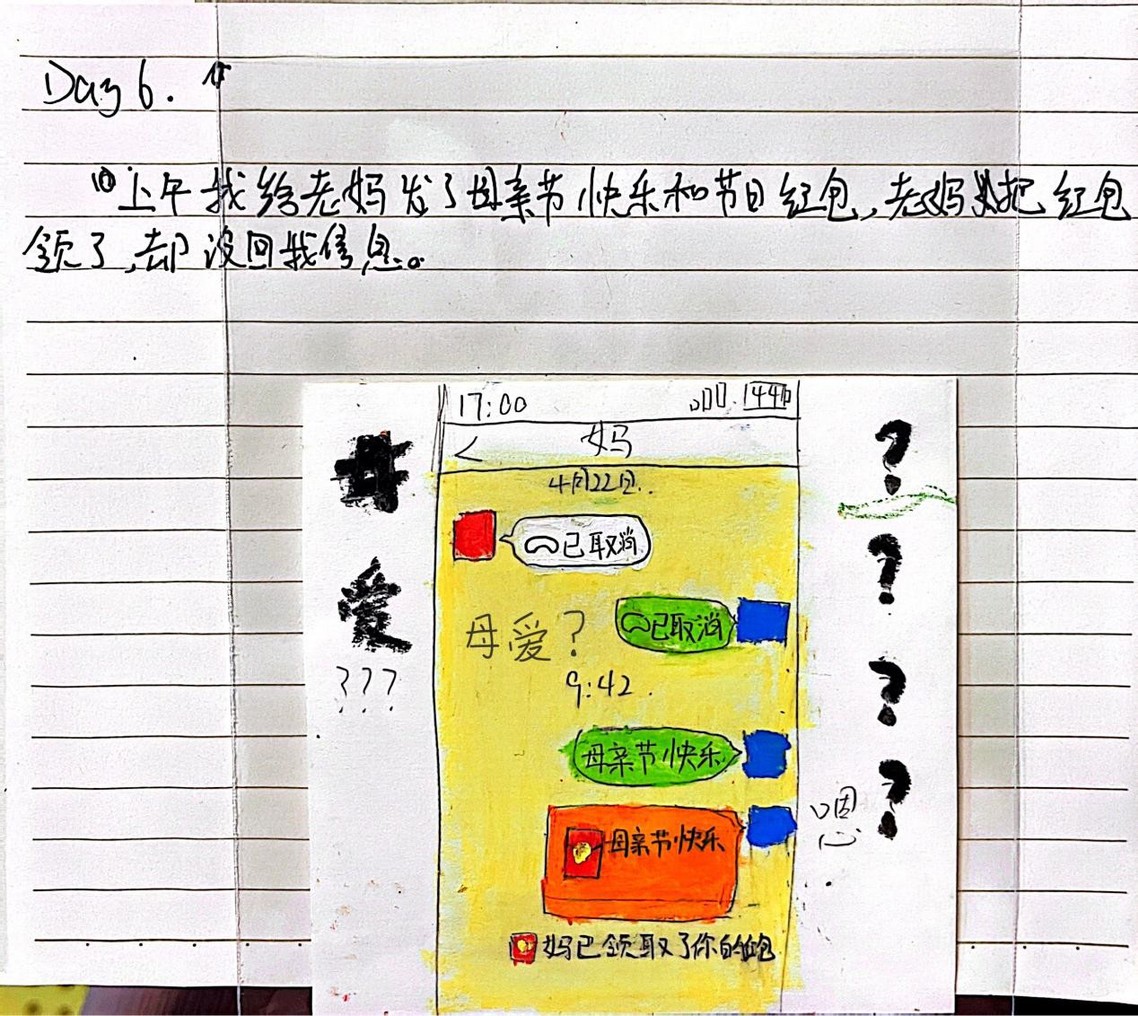 Day 6.
上午我给老妈发了母亲节快乐和节日红包，老妈把红包
领了，却没回我信息。
17:00
44
< 妈
4月22日.
已取消
已取消
母爱？
9:42.
母亲节快乐
母亲节快乐
妈已领取了你的红包
母
爱
???
?
?
?
?
嗯